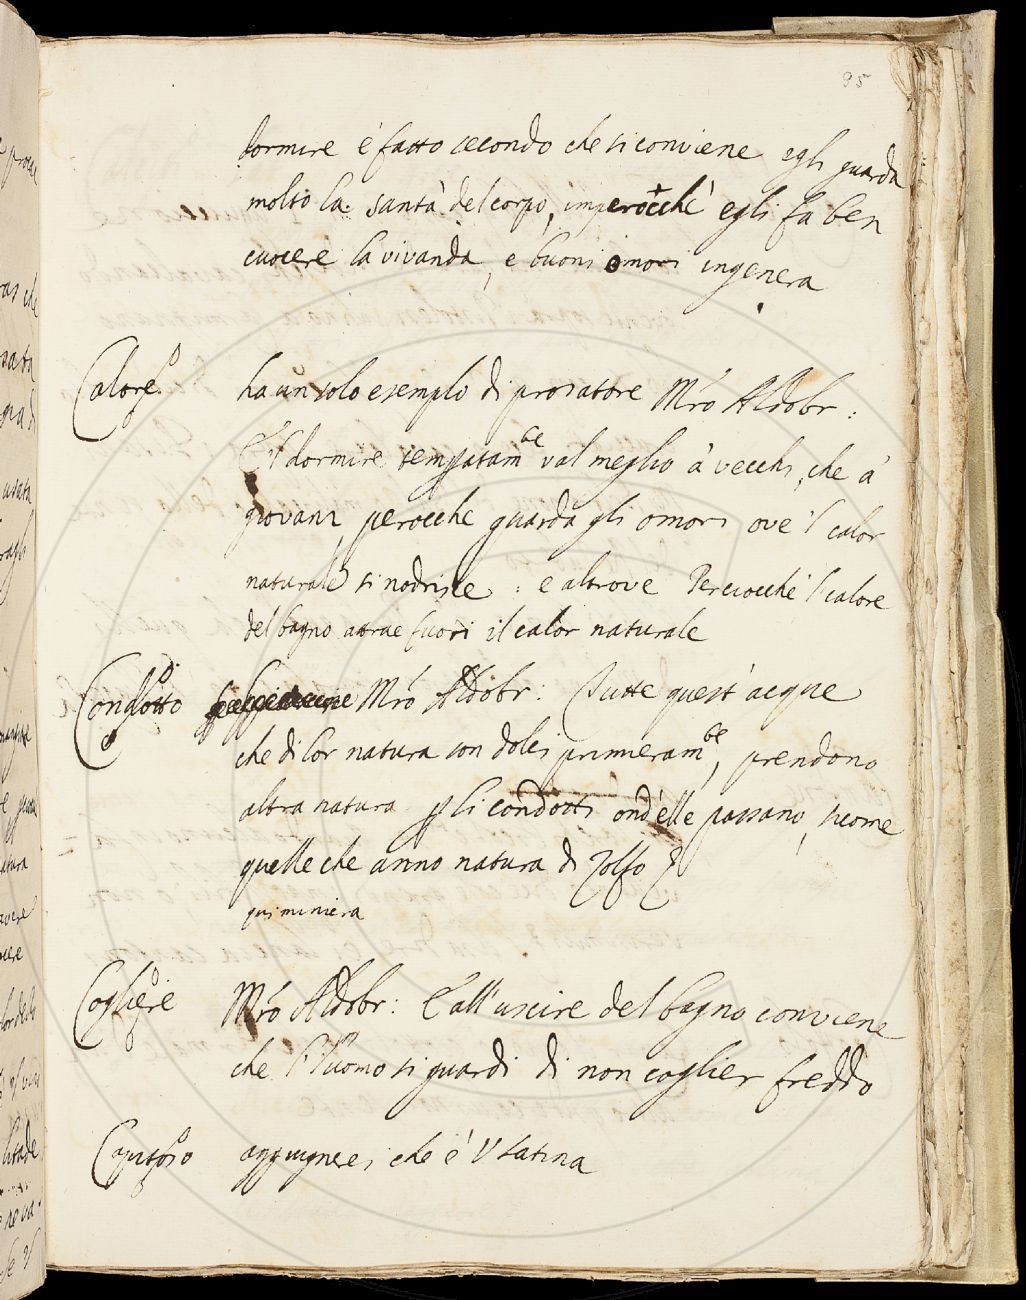 95
dormire è fatto secondo che si conviene egli guarda
molto la santà del corpo, imperocchè egli fa ben
cuocere la vivanda, e buoni omori ingenera
Calore. ha un solo esempio di prosatore Mro Aldobr:
E 'l dormire temperatamte val meglio à vecchi, che à
giovani, perocche guarda gli omori ove 'l calor
naturale si nodrisce: e altrove Perciocchè 'l calore
del bagno attrae fuori il calor naturale
Condotto Mro Aldobr: Tutte quest' acque
che di lor natura son dolci primieramte, prendono
altra natura p li condotti ond' elle passano, sicome
quelle che anno natura di Zolfo
qui miniera
Cogliere Mro Aldobr: E all' uscire del bagno conviene
che l' uomo si guardi di non coglier freddo
Caputoso aggiugnerei che è V. latina